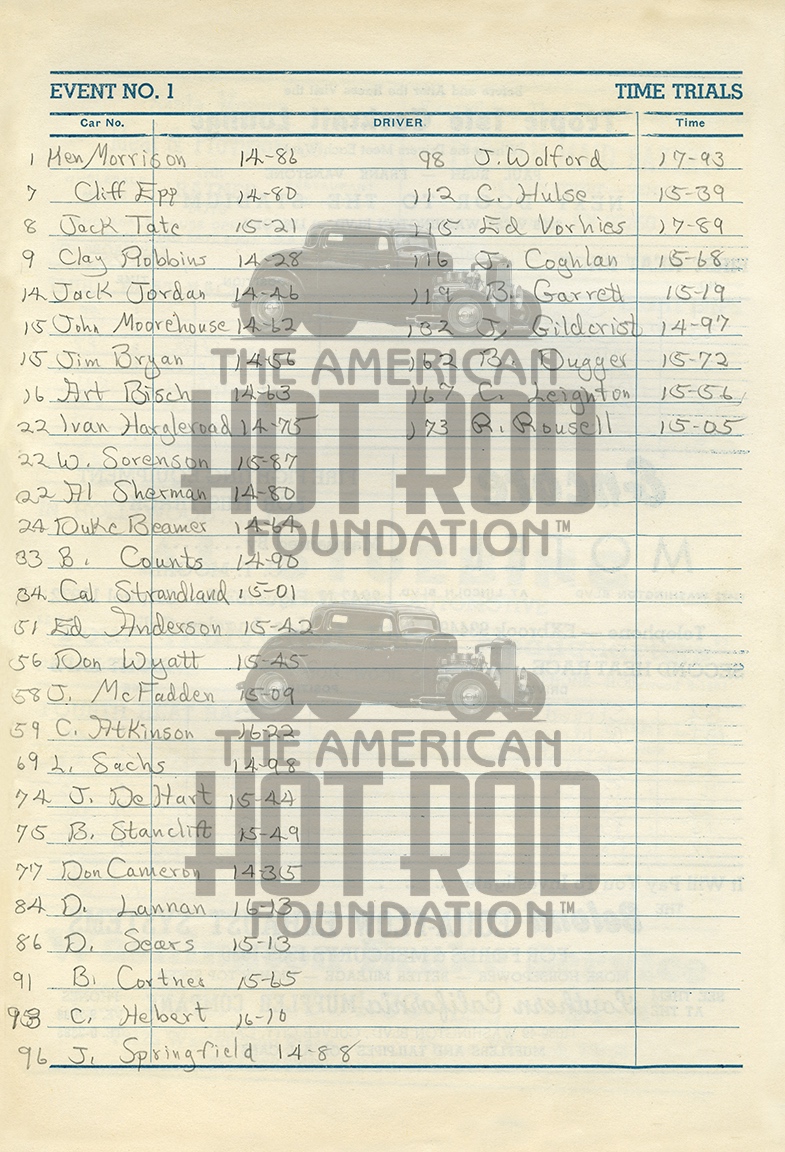 EVENT NO. 1 TIME TRIALS
Car No. DRIVER Time
1 Ken Morrison 14-86 98 J. Wolford 17-93
7 Cliff Epp 14-80 112 C. Hulse 15-39
8 Jack Tate 15-21 115 Ed Vorhies 17-89
9 Clay Robbins 14-28 116 J. Coghlan 15-68
14 Jack Jordan 14-46 119 B. Garrett 15-19
15 John Moorehouse 14-62 132 J. Gildcrist 14-97
15 Jim Bryan 14-56 162 B. Dugger 15-72
16 Art Bisch 14-63 167 C. Leighton 15-56
22 Ivan Hargleroad 14-75 173 R. Rousell 15-05
22 W. Sorenson 15-87
22 Al Sherman 14-80
24 Duke Beamer 14-64
33 B. Counts 14-90
34 Cal Strandland 15-01
51 Ed Anderson 15-42
56 Don Wyatt 15-45
58 J. McFadden 15-09
59 C. Atkinson 16-22
69 L. Sachs 14-98
74 J. DeHart 15-44
75 B. Stanclift 15-49
77 Don Cameron 14-35
84 D. Lannan 16-13
86 D. Sears 15-13
91 B. Cortner 15-65
93 C. Hebert 16-10
96 J. Springfield 14-88
THE AMERICAN
HOT ROD
FOUNDATION™
THE AMERICAN
HOT ROD
FOUNDATION™